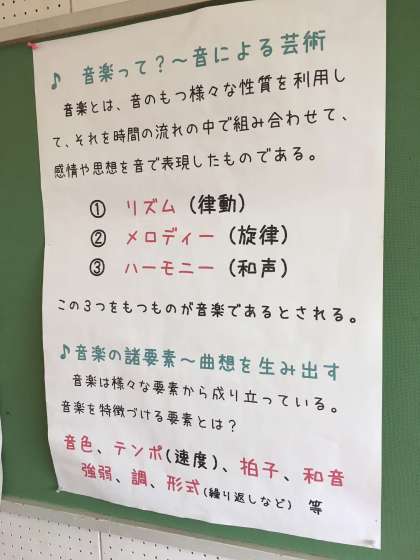 ♪ 音楽って？～音による芸術
音楽とは、音のもつ様々な性質を利用し
て、それを時間の流れの中で組み合わせて、
感情や思想を音で表現したものである。
① リズム（律動）
② メロディー（旋律）
③ ハーモニー（和声）
この３つをもつものが音楽であるとされる。
♪音楽の諸要素～曲想を生み出す
音楽は様々な要素から成り立っている。
音楽を特徴づける要素とは？
音色、テンポ(速度)、拍子、和音
強弱、調、形式(繰り返しなど) 等